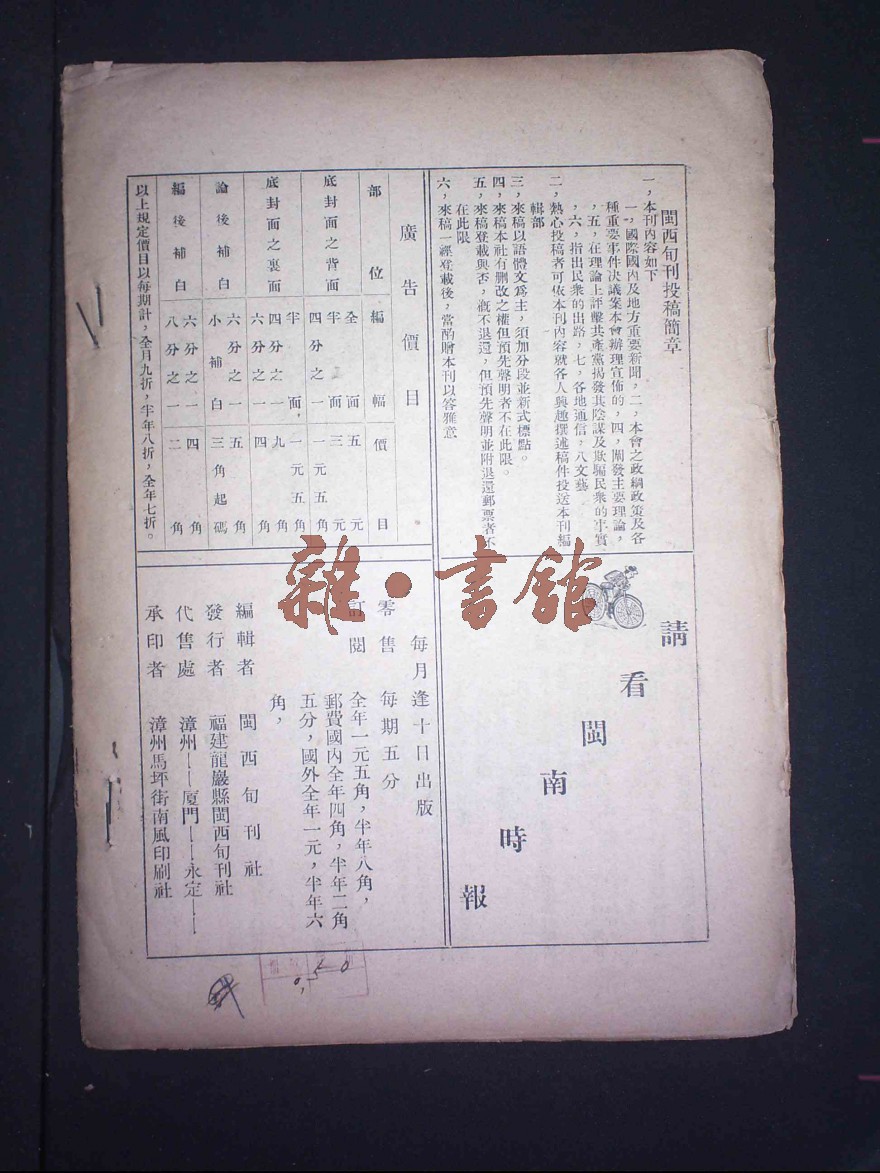 閩西旬刊投稿簡章
一，本刊內容如下
一，國際國內及地方重要新聞，二，本會之政綱政策及各
種重要事件决議案本會辦理宣佈的，四，闡發主要理論，
，五，在理論上評擊共產黨揭發其陰謀及欺騙民衆的事實
，六，指出民衆的出路，七，各地通信，八文藝
二，熱心投稿者可依本刊內容就各人興趣撰述稿件投送本刊編
輯部
三，來稿以語體文爲主，須加分段並新式標點。
四，來稿本社有刪改之權但預先聲明者不在此限。
五，來稿登載與否，概不退還，但預先聲明並附退還郵票者不
在此限
六，來稿一經登載後，當酌贈本刊以答雅意
廣告價目
部位 編幅 價目
底封面之背面 全面 五元
半面 三元
四分之一 一元五角
底封面之裏面 半面， 一元五角
四分之一 九角
六分之一 四角
論後補白 六分之一 五角
小補白 三角起碼
編後補白 六分之一 四角
八分之一 二角
以上規定價目以每期計，全月九折，半年八折，全年七折。
請看閩南時報
每月逢十日出版
零售 每期五分
訂閱 全年一元五角，半年八角，
郵費國內全年四角，半年二角
五分，國外全年一元，半年六
角，
編輯者 閩西旬刊社
發行者 福建龍巖縣閩西旬刊社
代售處 漳州——厦門——永定——
承印者 漳州馬坪街南風印刷社
雜·書館